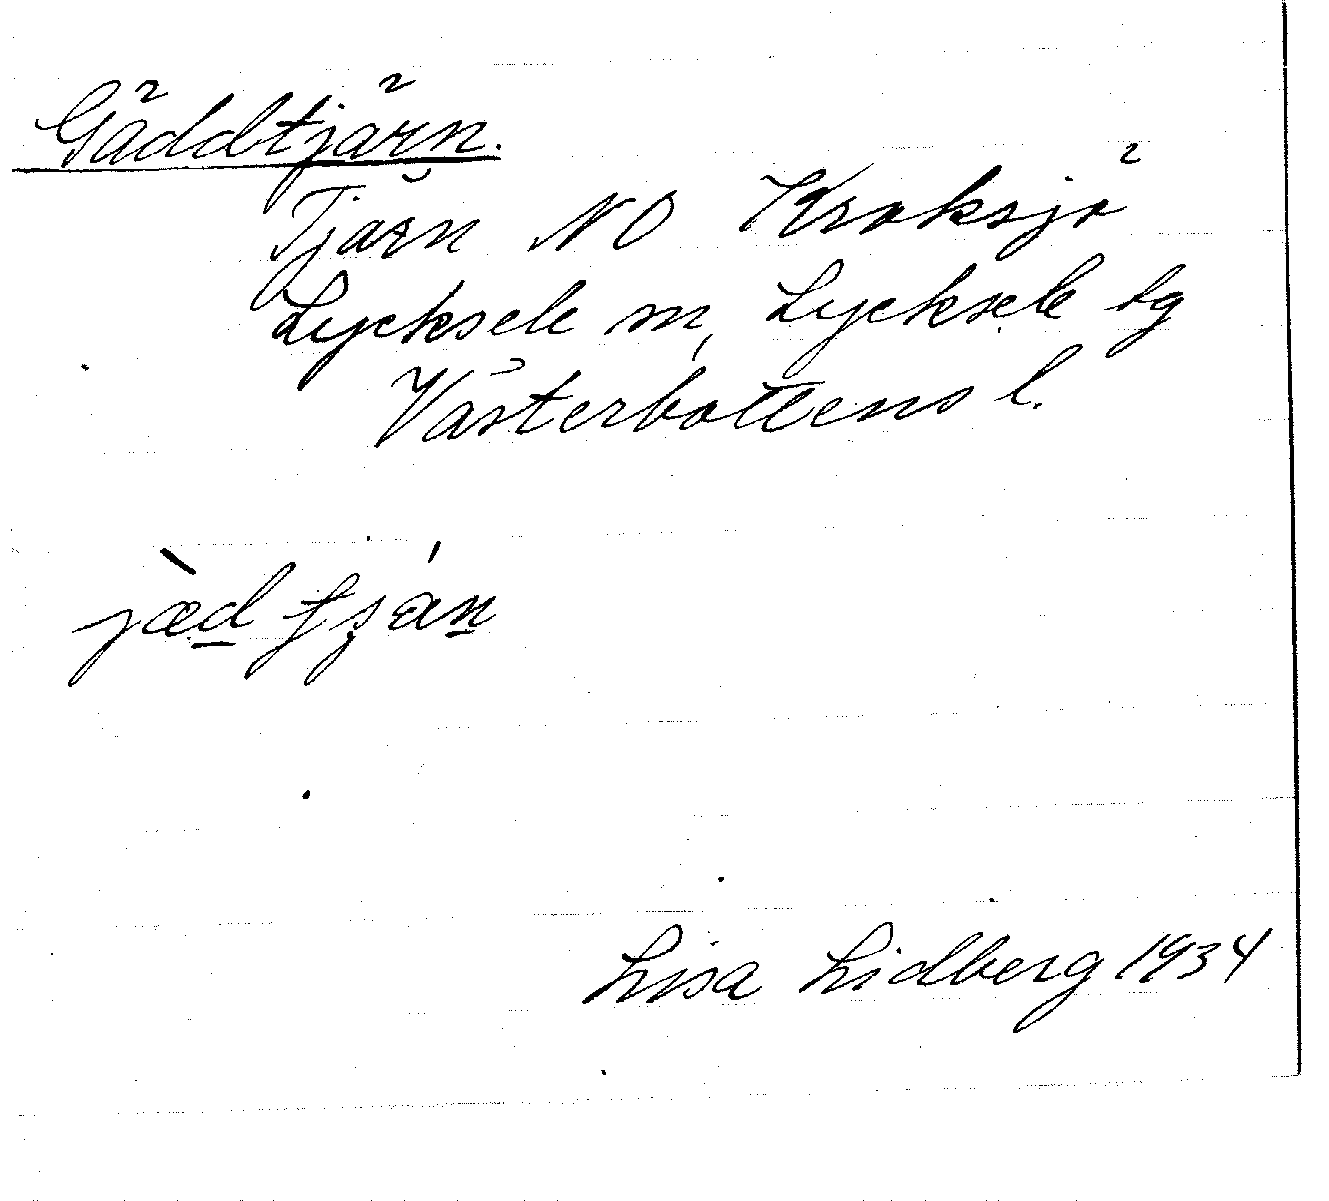 Gäddtjärn.
Tjärn NO Kroksjö
Lycksele m, Lycksele tg
Västerbottens l.
jæ̀d tján
Lisa Lidberg 1934